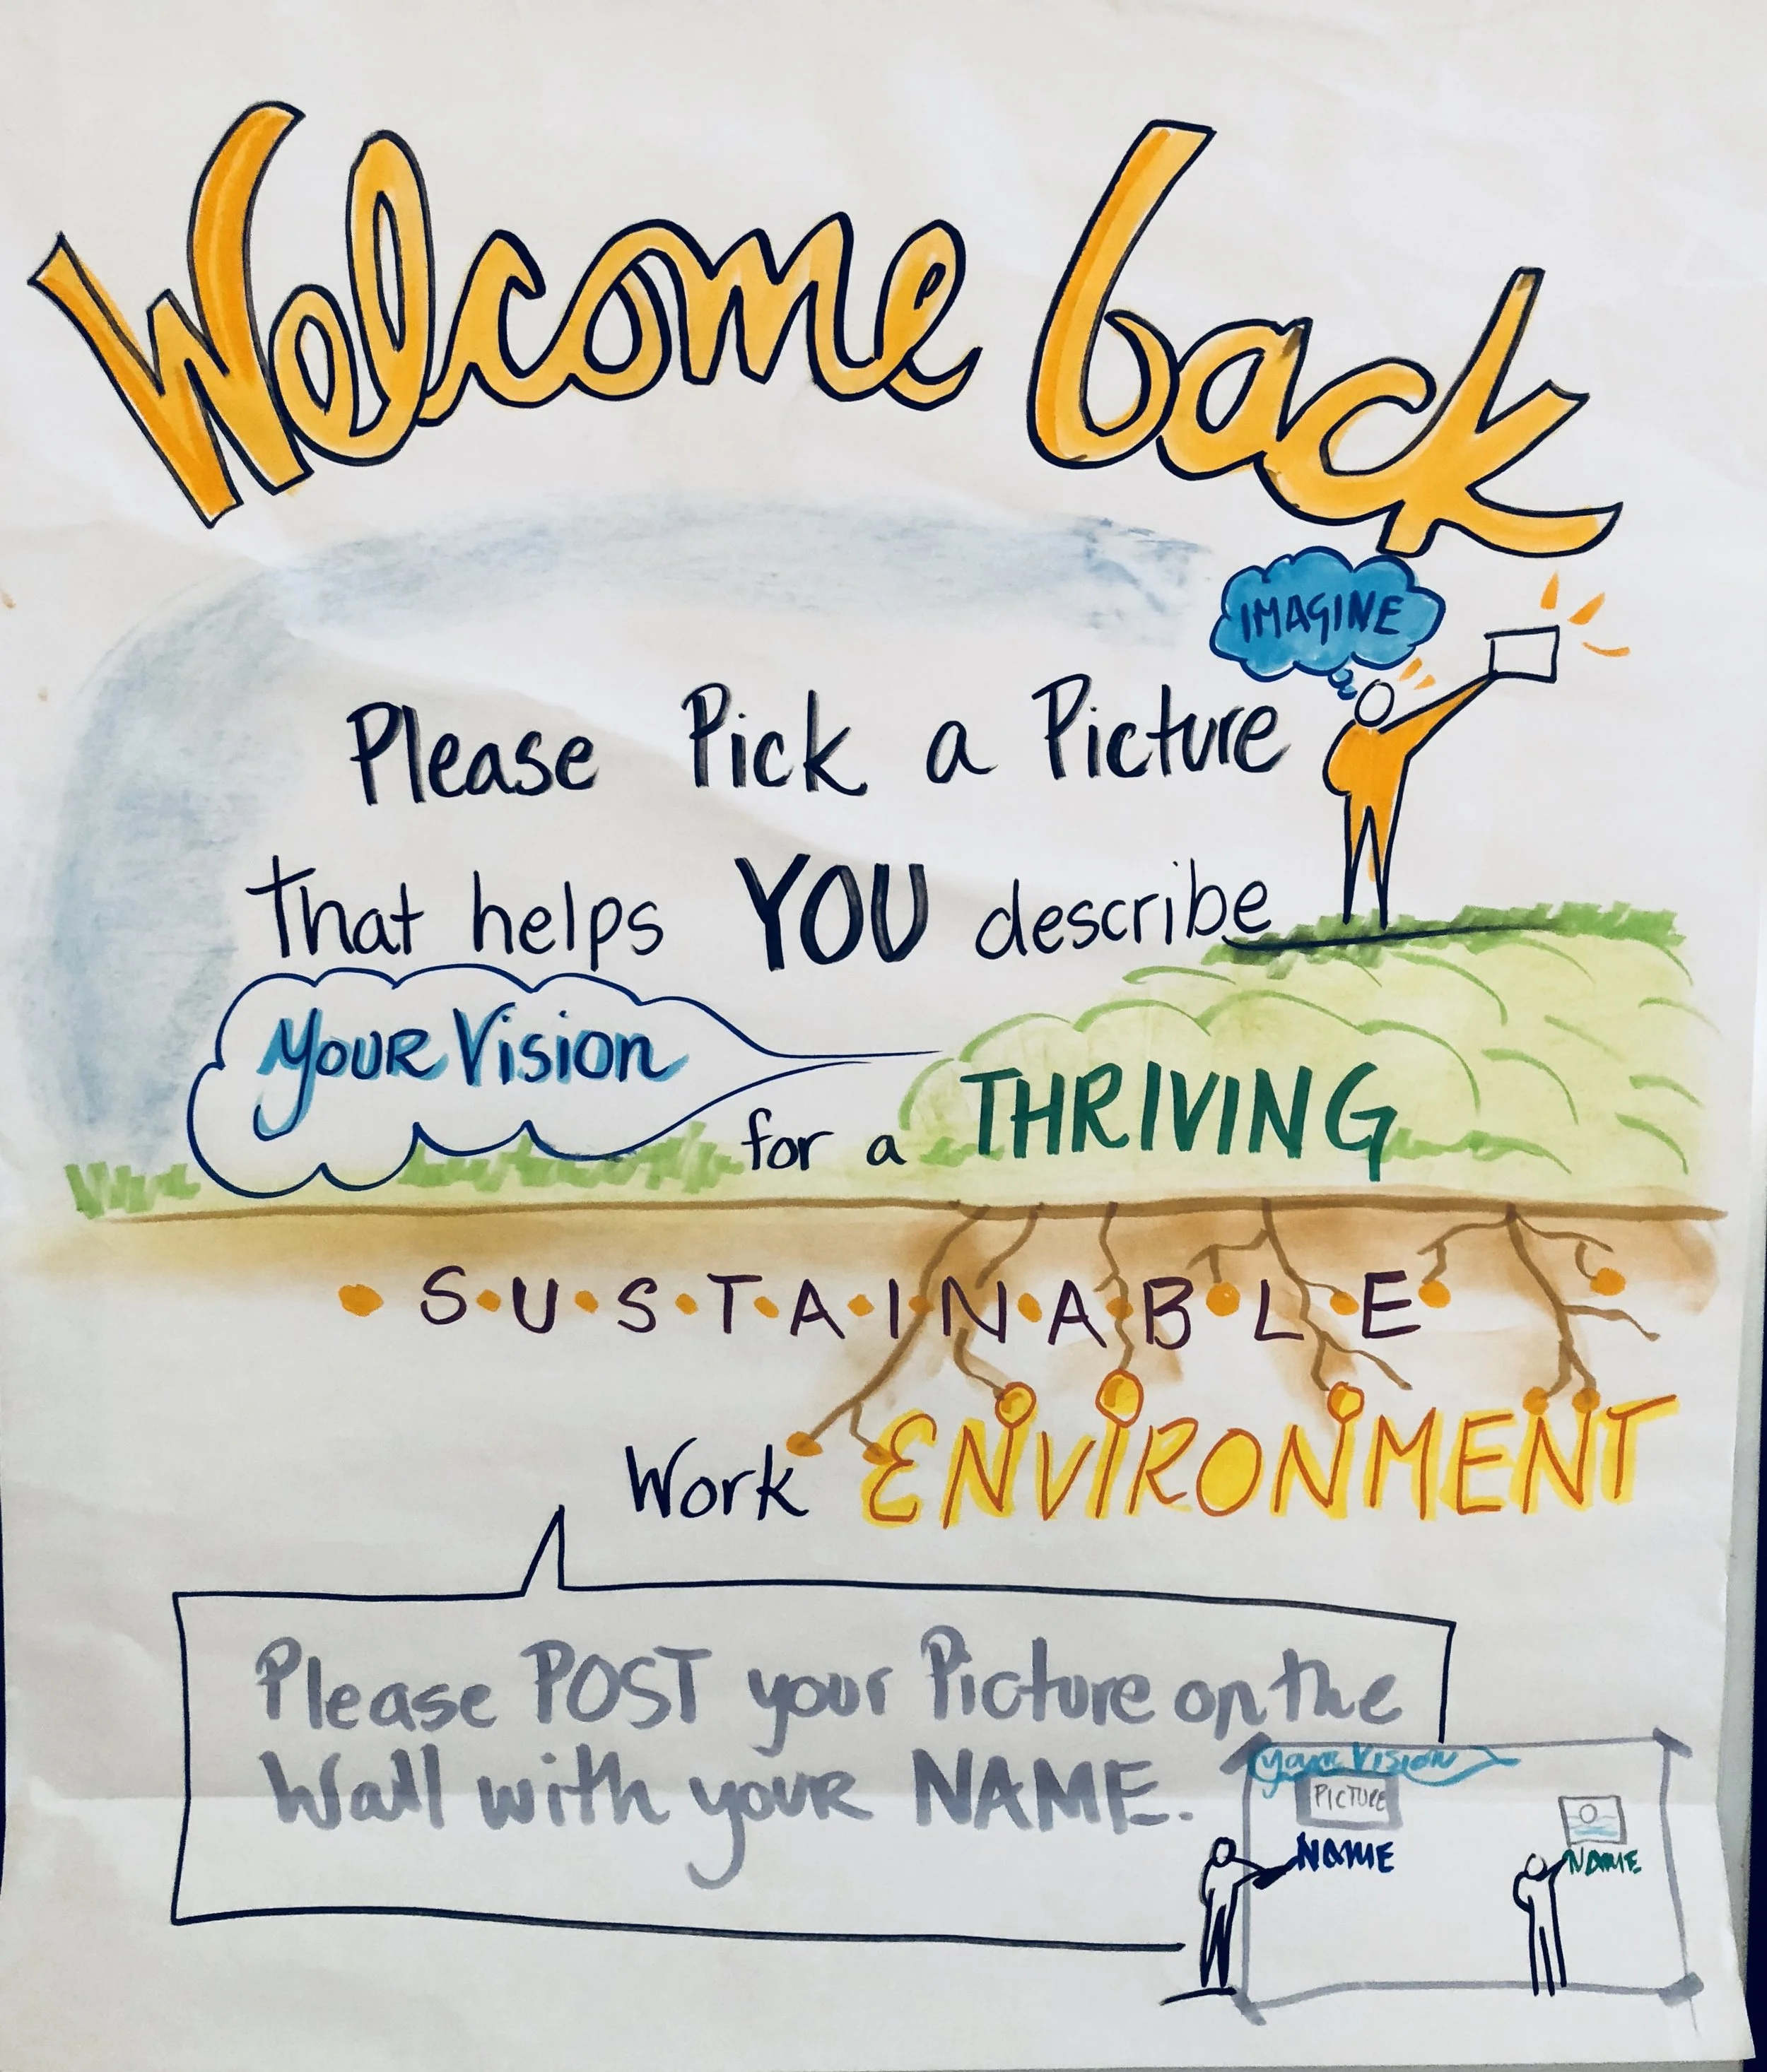 Welcome back
IMAGINE
Please Pick a Picture
that helps YOU describe
YOUR Vision
for a THRIVING
S·U·S·T·A·I·N·A·B·L·E
Work ENVIRONMENT
Please POST your Picture on the
Wall with your NAME.
your Vision
PICTURE
NAME
NAME